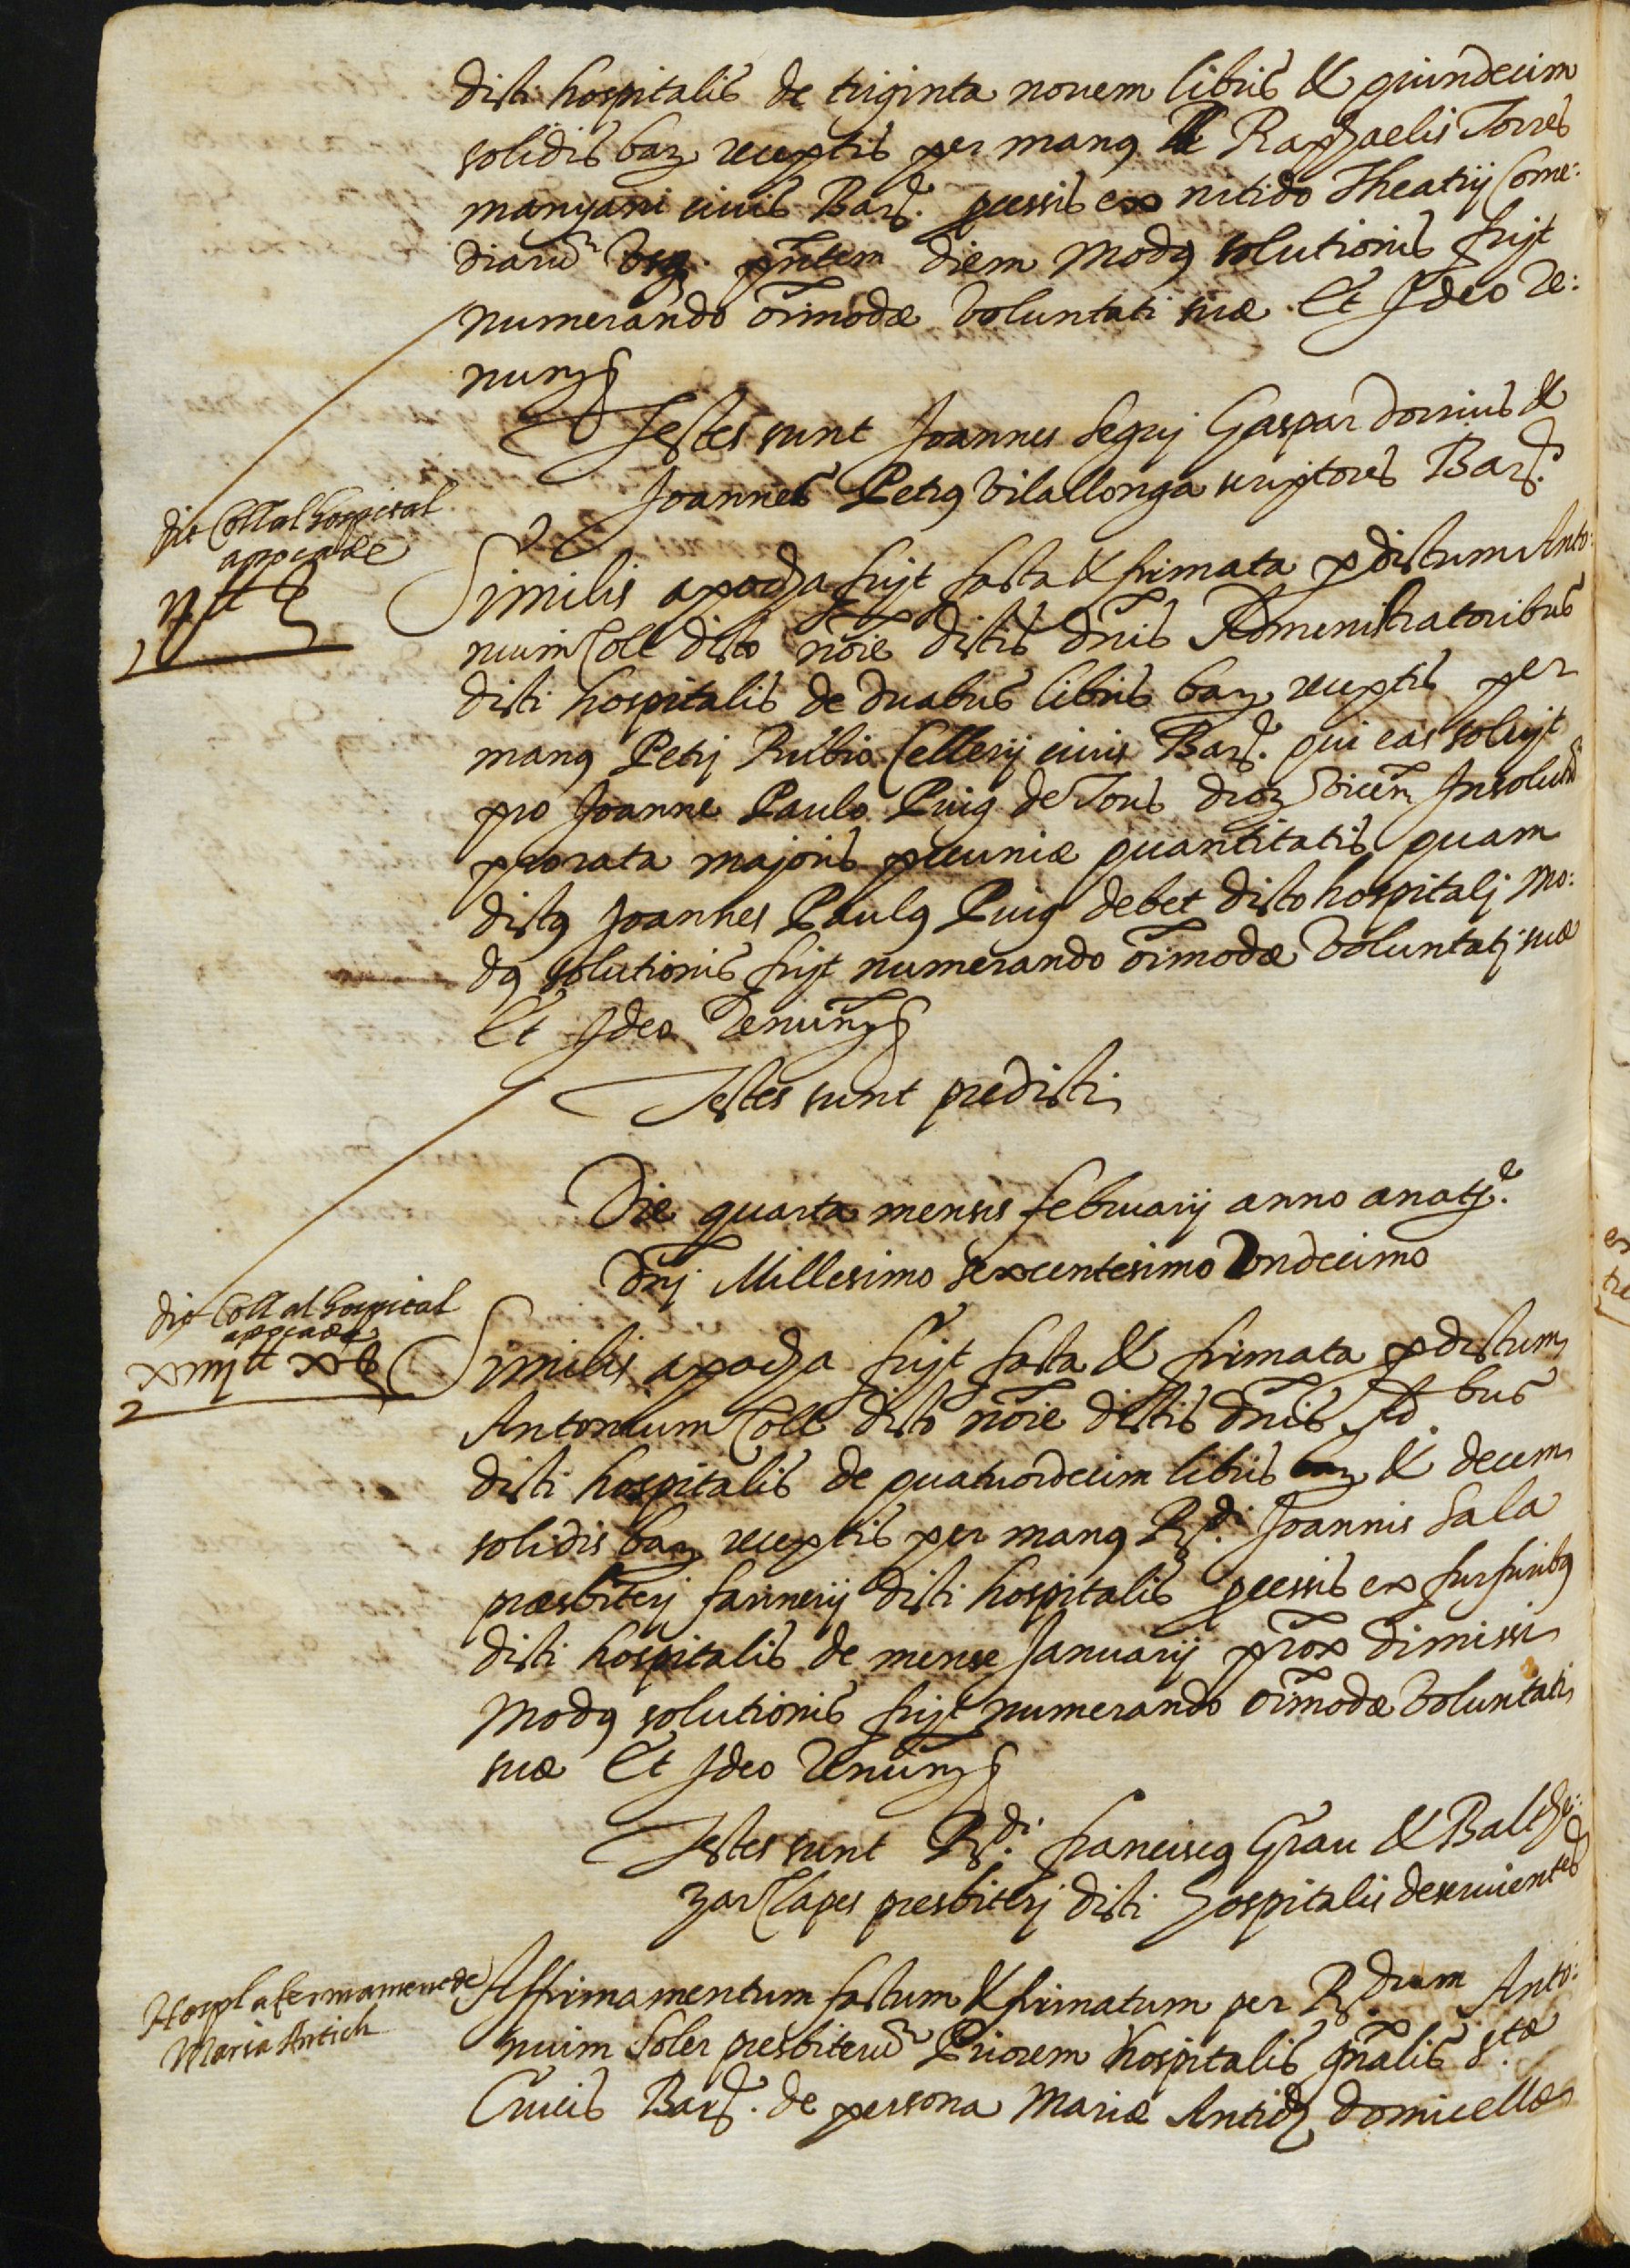 dicti hospitalis de triginta novem libris & quindecim
solidis barz receptis per manq Raphaelis Torres
manyani civis Barz. pcessis ex nitido Theatrij Come:
diarū usq. pñtem diem Modq solutionis fuit
numerando oĩmodæ voluntati suæ. Et Ideo re:
nunz
Testes sunt Joannes Seguj Gaspar Dorrius &
Joannes Petrq Vilallonga scriptores Barz.
dit Coll al hospital
apocade
II ₶
1
Similis apocha fuit facta & firmata p dictum Anto:
nium Coll dicto noĩe dictis dñis Administratoribus
dicti hospitalis de duabus libris barz receptis per
manq Petrj Rubio Cellerij civis Barz. qui eas soluit
pro Joanne Paulo Puig de Tous Insolutũ
prorata majoris pecuniæ quantitatis quam
dictq Joannes Paulq Puig debet dicto hospitalj Mo:
dq solutionis fuit numerando oĩmodæ voluntatj suæ
Et Ideo Renunz
Testes sunt predicti
Die quarta mensis februarij anno a natte.
Dñj Millesimo sexcentesimo Undecimo
dit Coll al hospital
apocade
xiiij ₶ x s
2
Similis apocha fuit facta & firmata p dictum
Antonium Coll dicto noĩe dictis dñis Ad.bus
dicti hospitalis de quatuordecim libris & decem
solidis barz receptis per manq Rdi. Joannis Sala
præsbiterj farinerij dicti hospitalis pcessis ex furfuribq
dicti hospitalis de mense Januarij prox̃ dimissi
Modq solutionis fuit numerando oĩmodæ voluntati
suæ Et Ideo Renunz
Testes sunt Rdi. franciscq Grau & Balthe:
zar Clapes presbiterj dicti hospitalis deservientes
Hospl afermament de
Maria Antich
Affirmamentum factum & firmatum per Rdum. Anto:
nium Soler presbiterũ Priorem hospitalis gñalis Stæ
Crucis Barz. de persona Mariæ Antich domicellæ